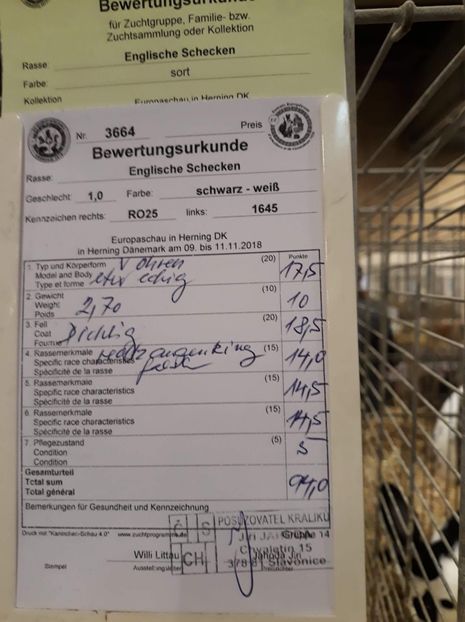 Bewertungsurkunde
für Zuchtgruppe, Familie- bzw.
Zuchtsammlung oder Kollektion
Rasse: Englische Schecken
Farbe: sort
Kollektion Europaschau in Herning DK
Nr. 3664 Preis
Bewertungsurkunde
Rasse: Englische Schecken
Geschlecht: 1,0 Farbe: schwarz - weiß
Kennzeichen rechts: RO25 links: 1645
Europaschau in Herning DK
in Herning Dänemark am 09. bis 11.11.2018
Punkte
1. Typ und Körperform Ohren (20) 17,5
Model and Body
Type et forme
2. Gewicht (10) 10
Weight 2,70
Poids
3. Fell (20) 18,5
Coat Dichtig
Fourrure
4. Rassemerkmale (15) 14,0
Specific race characteristics
Spécificité de la rasse
5. Rassemerkmale (15) 14,5
Specific race characteristics
Spécificité de la rasse
6. Rassemerkmale (15) 14,5
Specific race characteristics
Spécificité de la rasse
7. Pflegezustand (5) 5
Condition
Condition
Gesamturteil
Total sum 94,0
Total général
Bemerkungen für Gesundheit und Kennzeichnung
Č S POSUZOVATEL KRALIKU
Druck mit "Kaninchen-Schau 4.0" www.zuchtprogramme.de Jiri Gruppe 14
Willi Littau CH 15
Stempel Ausstellungsleiter Slavonice